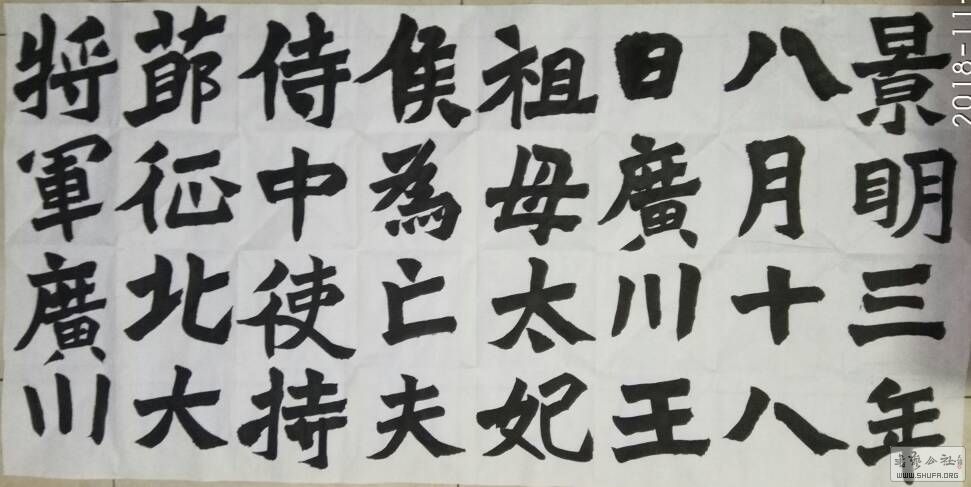 景明三年
八月十八
日廣川王
祖母太妃
侯為亡夫
侍中使持
節征北大
將軍廣川
2018-11
书艺公社
WWW.SHUFA.ORG